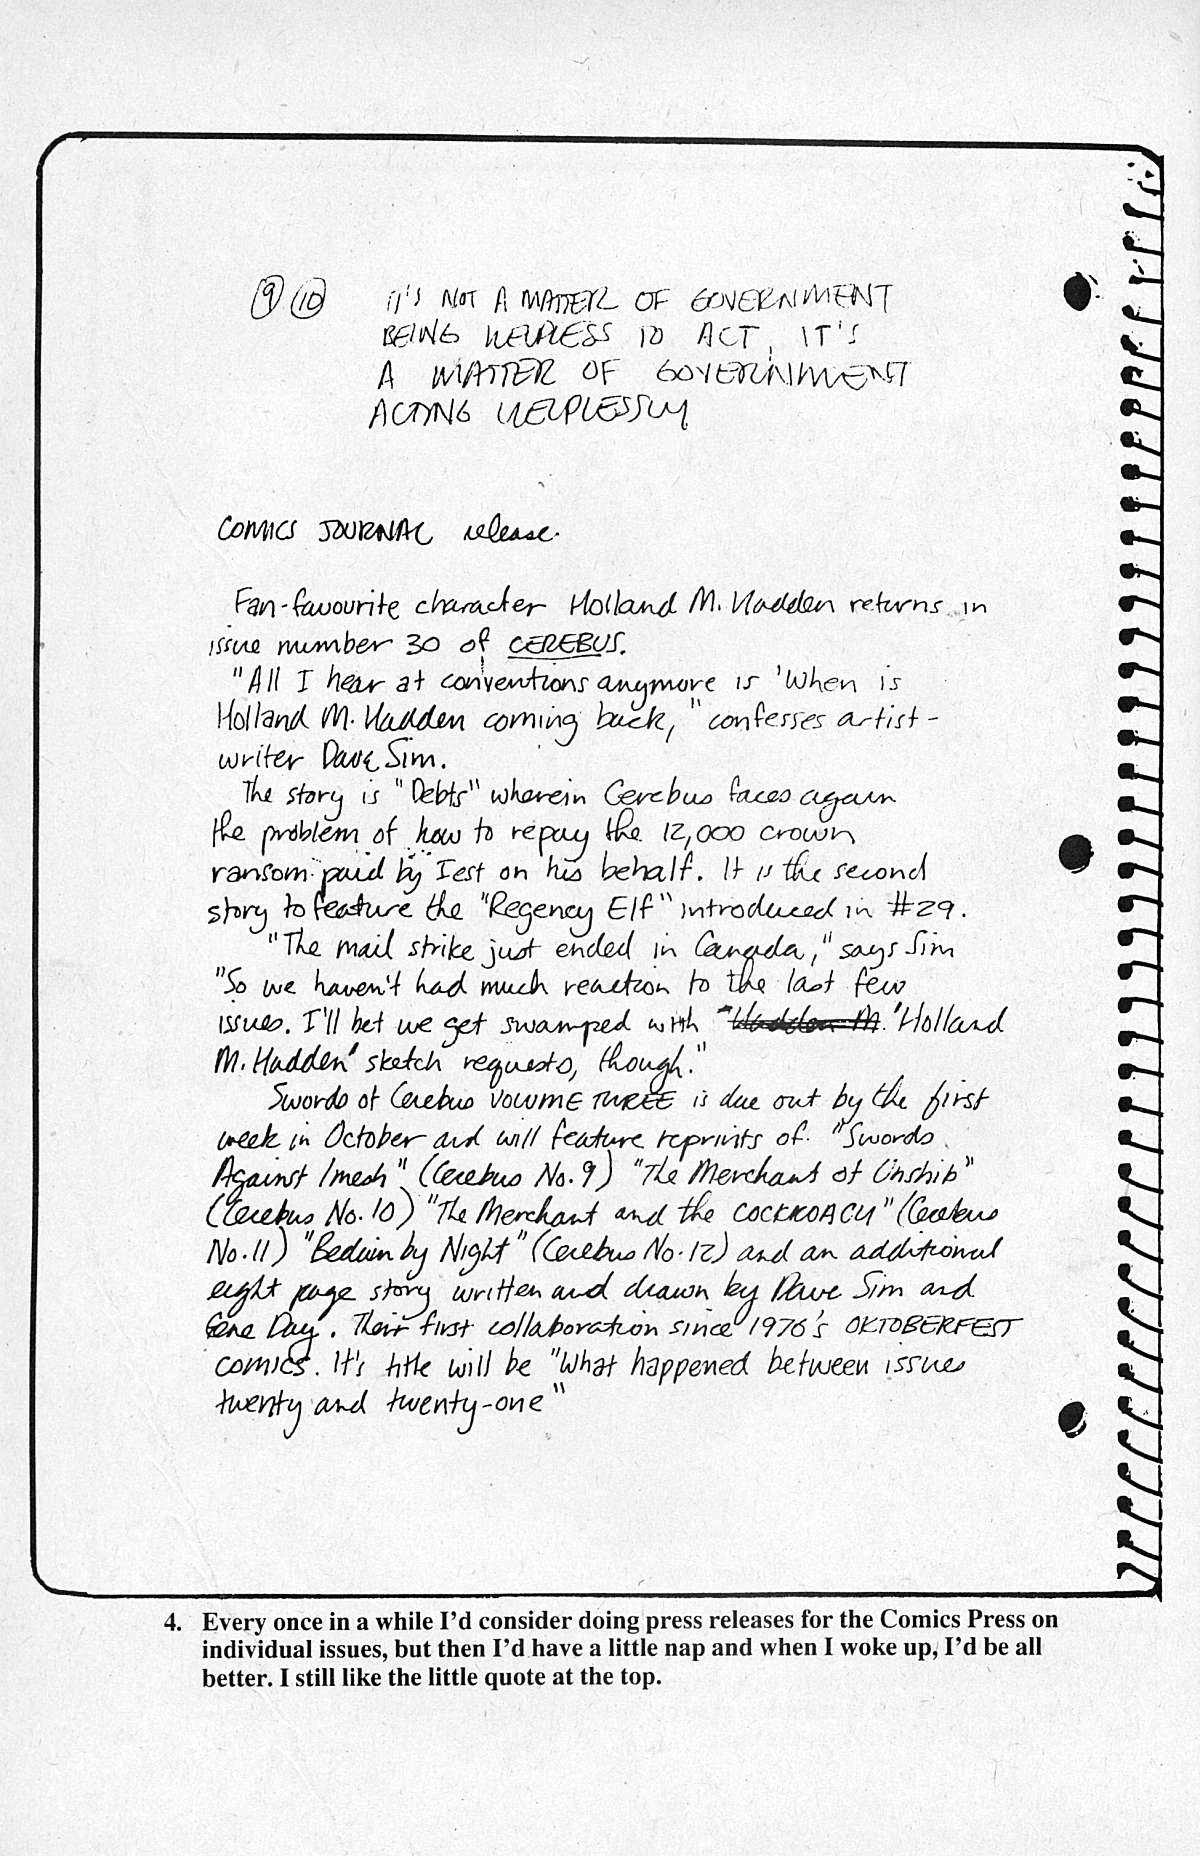 9 10 IT'S NOT A MATTER OF GOVERNMENT
BEING HELPLESS TO ACT, IT'S
A MATTER OF GOVERNMENT
ACTING HELPLESSLY
COMICS JOURNAL release.
Fan-favourite character Holland M. Hadden returns in
issue number 30 of CEREBUS.
"All I hear at conventions anymore is 'When is
Holland M. Hadden coming back," confesses artist-
writer Dave Sim.
The story is "Debts" wherein Cerebus faces again
the problem of how to repay the 12,000 crown
ransom paid by Iest on his behalf. It is the second
story to feature the "Regency Elf" introduced in #29.
"The mail strike just ended in Canada," says Sim
"So we haven't had much reaction to the last few
issues. I'll bet we get swamped with "Hadden M. 'Holland
M. Hadden' sketch requests, though."
Swords of Cerebus VOLUME THREE is due out by the first
week in October and will feature reprints of "Swords
Against Imesh" (Cerebus No. 9) "The Merchant of Unshib"
(Cerebus No. 10) "The Merchant and the COCKROACH" (Cerebus
No. 11) "Beduin by Night" (Cerebus No. 12) and an additional
eight page story written and drawn by Dave Sim and
Gene Day. Their first collaboration since 1976's OKTOBERFEST
COMICS. It's title will be "What happened between issues
twenty and twenty-one"
4. Every once in a while I'd consider doing press releases for the Comics Press on
individual issues, but then I'd have a little nap and when I woke up, I'd be all
better. I still like the little quote at the top.